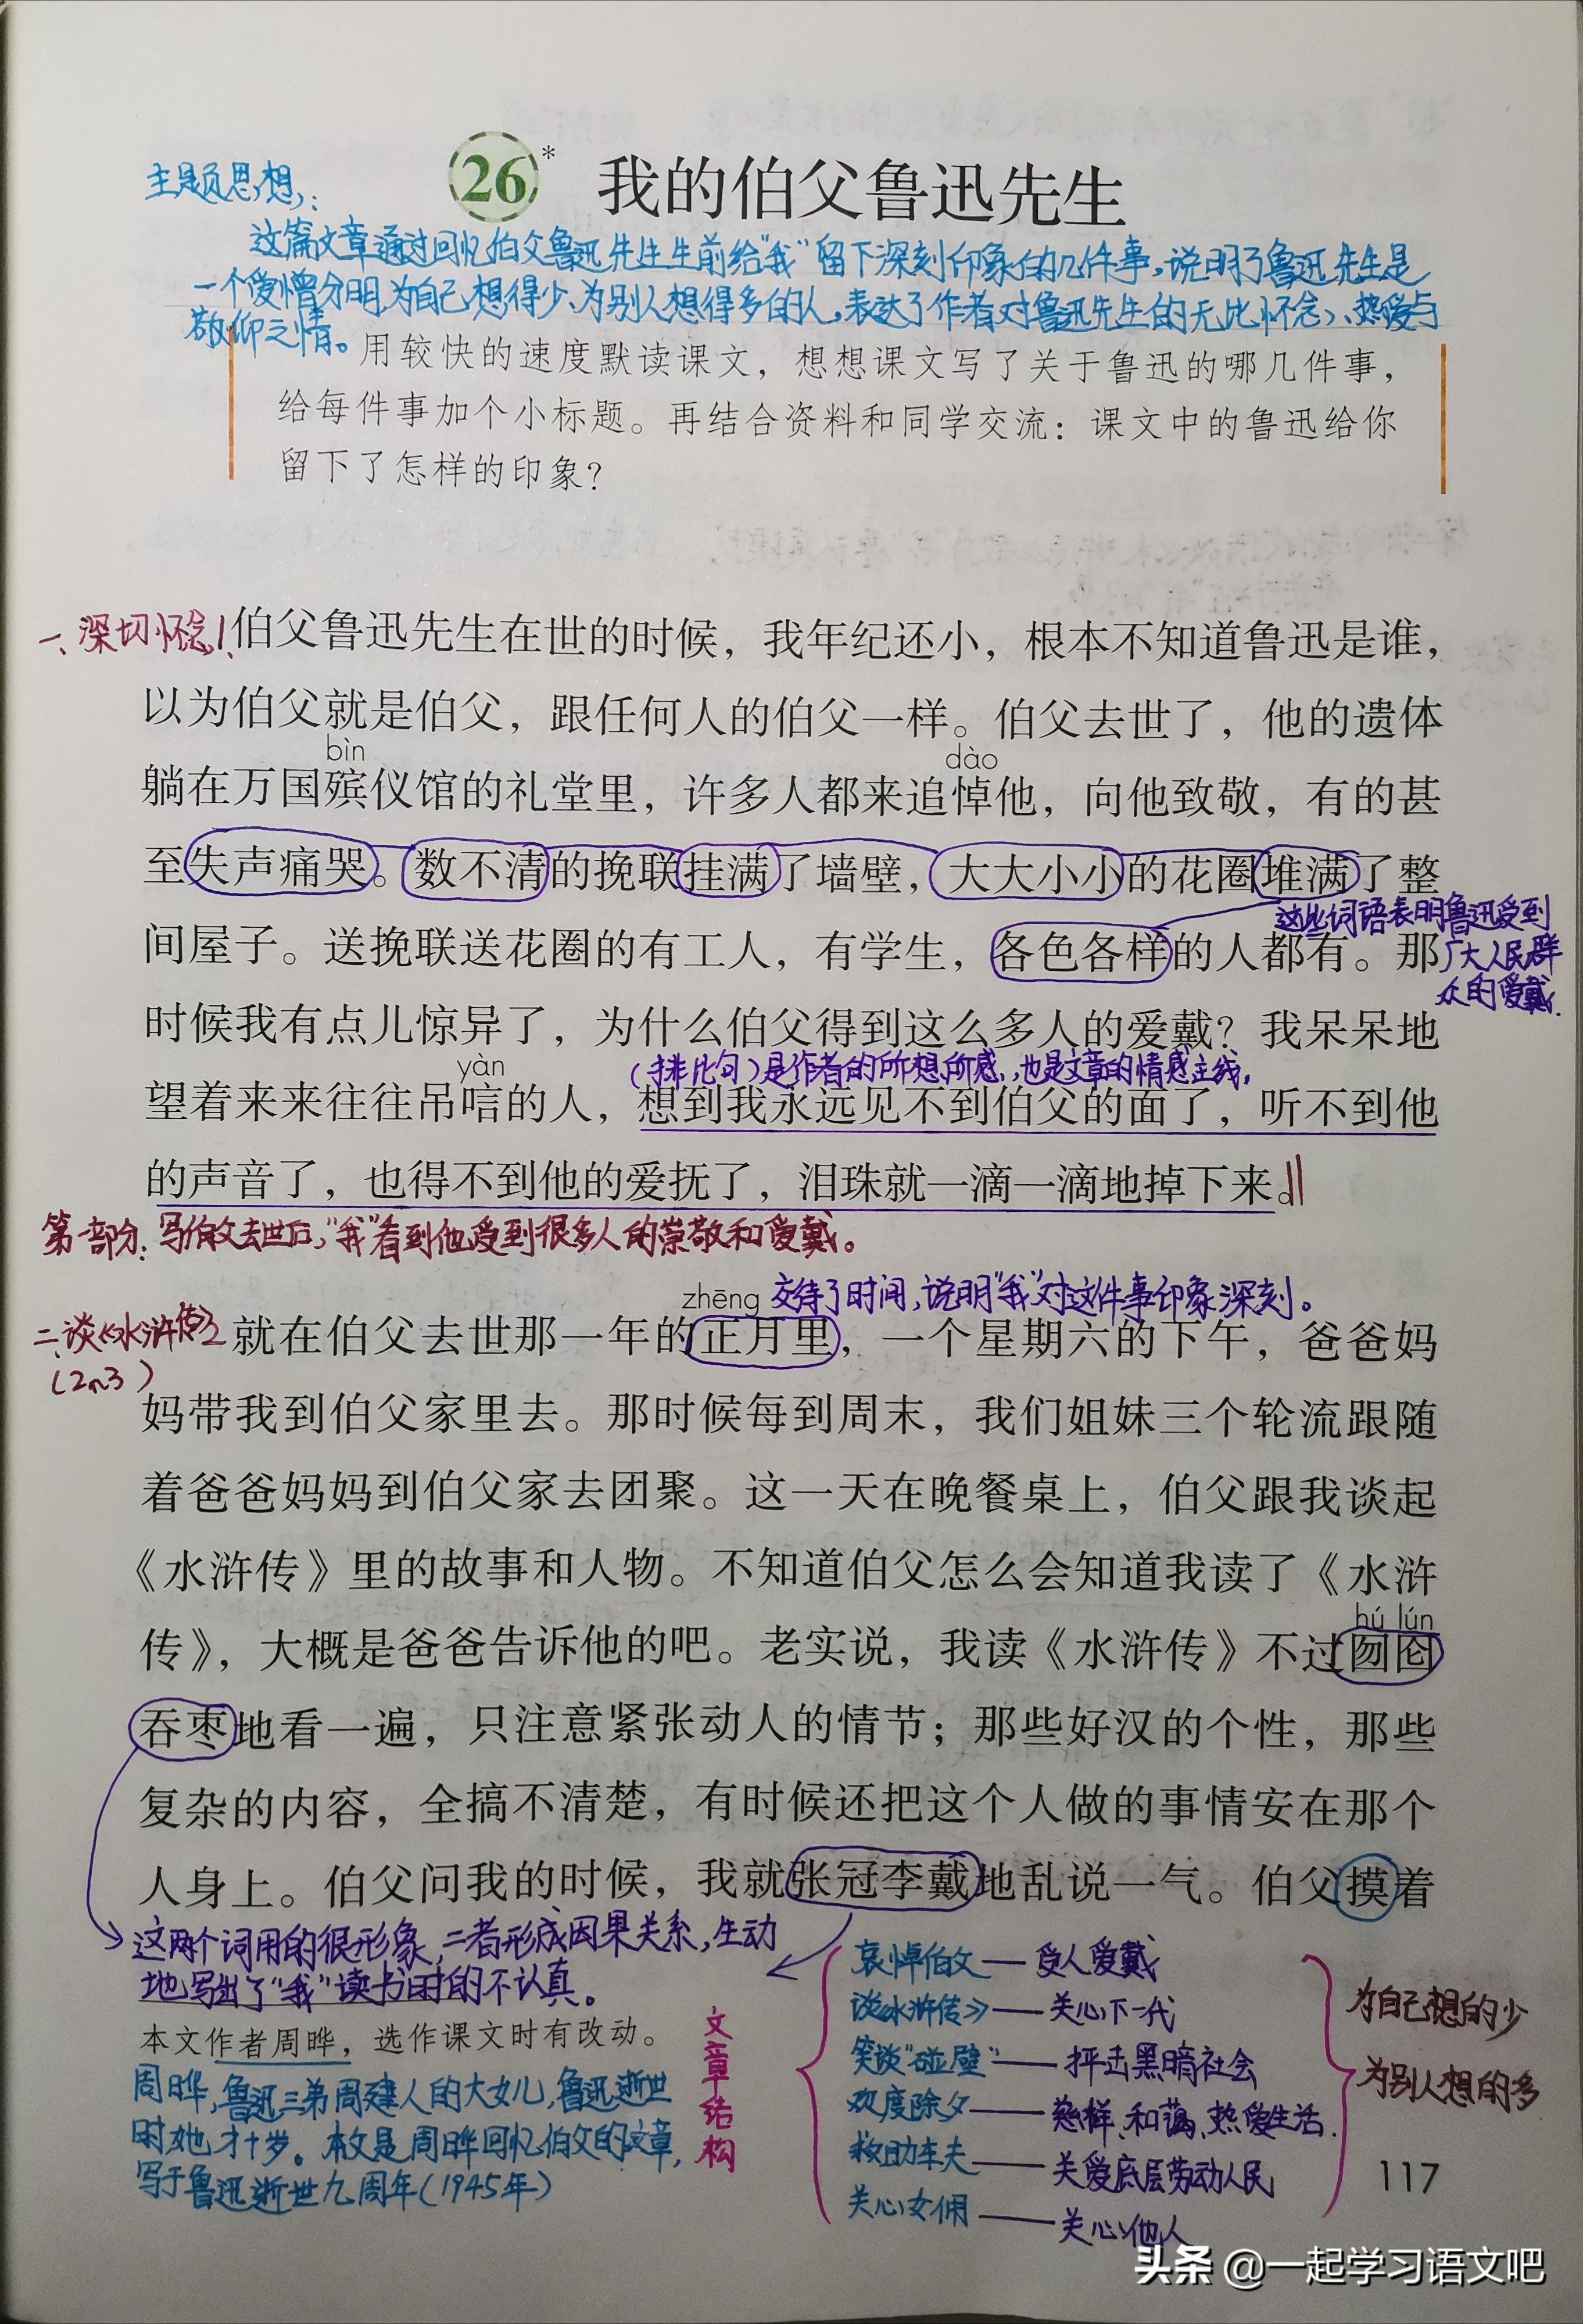 主题思想：
26* 我的伯父鲁迅先生
这篇文章通过回忆伯父鲁迅先生生前给“我”留下深刻印象的几件事，说明了鲁迅先生是
一个爱憎分明，为自己想得少、为别人想得多的人，表达了作者对鲁迅先生的无比怀念、热爱与
敬仰之情。
用较快的速度默读课文，想想课文写了关于鲁迅的哪几件事，
给每件事加个小标题。再结合资料和同学交流：课文中的鲁迅给你
留下了怎样的印象？
一、深切怀念1、
伯父鲁迅先生在世的时候，我年纪还小，根本不知道鲁迅是谁，
以为伯父就是伯父，跟任何人的伯父一样。伯父去世了，他的遗体
bìn dào
躺在万国殡仪馆的礼堂里，许多人都来追悼他，向他致敬，有的甚
至失声痛哭。数不清的挽联挂满了墙壁，大大小小的花圈堆满了整
这些词语表明鲁迅受到
间屋子。送挽联送花圈的有工人，有学生，各色各样的人都有。那
广大人民群
众的爱戴.
时候我有点儿惊异了，为什么伯父得到这么多人的爱戴？我呆呆地
yàn
（排比句）是作者的所想所感，也是文章的情感主线，
望着来来往往吊唁的人，想到我永远见不到伯父的面了，听不到他
的声音了，也得不到他的爱抚了，泪珠就一滴一滴地掉下来。
第一部分：写伯父去世后，“我”看到他受到很多人的崇敬和爱戴。
zhēng 交待了时间，说明“我”对这件事印象深刻。
二、谈《水浒传》2
（2~3）
就在伯父去世那一年的正月里，一个星期六的下午，爸爸妈
妈带我到伯父家里去。那时候每到周末，我们姐妹三个轮流跟随
着爸爸妈妈到伯父家去团聚。这一天在晚餐桌上，伯父跟我谈起
《水浒传》里的故事和人物。不知道伯父怎么会知道我读了《水浒
hú lún
传》，大概是爸爸告诉他的吧。老实说，我读《水浒传》不过囫囵
吞枣地看一遍，只注意紧张动人的情节；那些好汉的个性，那些
复杂的内容，全搞不清楚，有时候还把这个人做的事情安在那个
人身上。伯父问我的时候，我就张冠李戴地乱说一气。伯父摸着
这两个词用的很形象，二者形成因果关系，生动
地写出了“我”读书时的不认真。
本文作者周晔，选作课文时有改动。
周晔，鲁迅三弟周建人的大女儿，鲁迅逝世
时她才十岁。本文是周晔回忆伯父的文章，
写于鲁迅逝世九周年（1945年）
文章结构
哀悼伯父——受人爱戴
谈《水浒传》——关心下一代
笑谈“碰壁”——抨击黑暗社会
欢度除夕——慈祥、和蔼、热爱生活.
救助车夫——关爱底层劳动人民
关心女佣——关心他人
为自己想的少
为别人想的多
117
头条 @一起学习语文吧